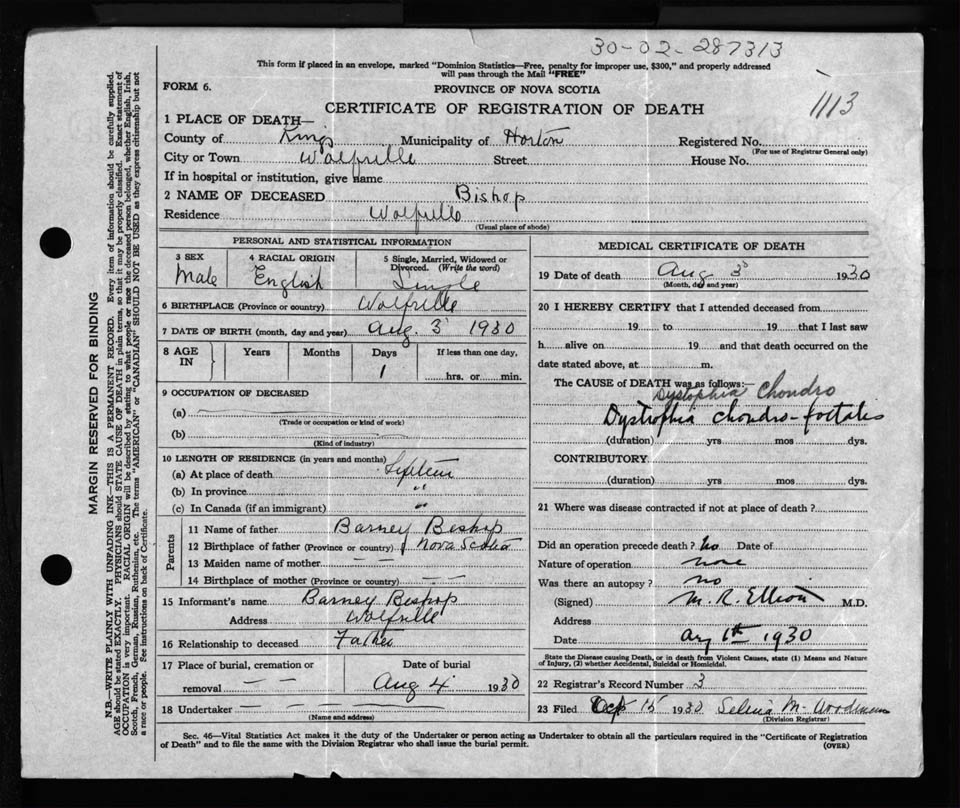 30-02-287313
This form if placed in an envelope, marked "Dominion Statistics—Free, penalty for improper use, $300," and properly addressed
will pass through the Mail "FREE"
FORM 6.
PROVINCE OF NOVA SCOTIA
CERTIFICATE OF REGISTRATION OF DEATH
1113
1 PLACE OF DEATH—
County of Kings Municipality of Horton Registered No.
(For use of Registrar General only)
City or Town Wolfville Street House No.
If in hospital or institution, give name
2 NAME OF DECEASED Bishop
Residence Wolfville
(Usual place of abode)
PERSONAL AND STATISTICAL INFORMATION
3 SEX 4 RACIAL ORIGIN 5 Single, Married, Widowed or
Divorced. (Write the word)
Male English Single
6 BIRTHPLACE (Province or country) Wolfville
7 DATE OF BIRTH (month, day and year) Aug. 3 1930
8 AGE IN Years Months Days If less than one day,
1 hrs. or min.
9 OCCUPATION OF DECEASED
(a)
(Trade or occupation or kind of work)
(b)
(Kind of industry)
10 LENGTH OF RESIDENCE (in years and months)
(a) At place of death
(b) In province "
(c) In Canada (if an immigrant) "
Parents
11 Name of father Barney Bishop
12 Birthplace of father (Province or country) Nova Scotia
13 Maiden name of mother — —
14 Birthplace of mother (Province or country) — —
15 Informant's name Barney Bishop
Address Wolfville
16 Relationship to deceased Father
17 Place of burial, cremation or Date of burial
removal — — Aug 4 1930
18 Undertaker — —
(Name and address)
MEDICAL CERTIFICATE OF DEATH
19 Date of death Aug 3 1930
(Month, day and year)
20 I HEREBY CERTIFY that I attended deceased from
19 to 19 that I last saw
h alive on 19 and that death occurred on the
date stated above, at m.
The CAUSE of DEATH was as follows:—
Dystophia Chondro
Dystrophia chondro-foetalis
(duration) yrs. mos. dys.
CONTRIBUTORY.
(duration) yrs. mos. dys.
21 Where was disease contracted if not at place of death ?
Did an operation precede death ? No Date of
Nature of operation none
Was there an autopsy ? no
(Signed) M. R. Elliott M.D.
Address
Date Aug 6th 1930
State the Disease causing Death, or in death from Violent Causes, state (1) Means and Nature
of Injury, (2) whether Accidental, Suicidal or Homicidal.
22 Registrar's Record Number 3
23 Filed 15 1930 Selena M.
(Division Registrar)
Sec. 46—Vital Statistics Act makes it the duty of the Undertaker or person acting as Undertaker to obtain all the particulars required in the "Certificate of Registration
of Death" and to file the same with the Division Registrar who shall issue the burial permit.
(OVER)
MARGIN RESERVED FOR BINDING
N.B.—WRITE PLAINLY WITH UNFADING INK—THIS IS A PERMANENT RECORD. Every item of information should be carefully supplied.
AGE should be stated EXACTLY. PHYSICIANS should STATE CAUSE OF DEATH in plain terms, so that it may be properly classified. Exact statement of
OCCUPATION is very important. RACIAL ORIGIN will be described by stating to what people or race the deceased person belonged, whether English, Irish,
Scotch, French, German, Russian, Ruthenian, etc. The terms "AMERICAN" or "CANADIAN" SHOULD NOT BE USED as they express citizenship but not
a race or people. See instructions on back of Certificate.